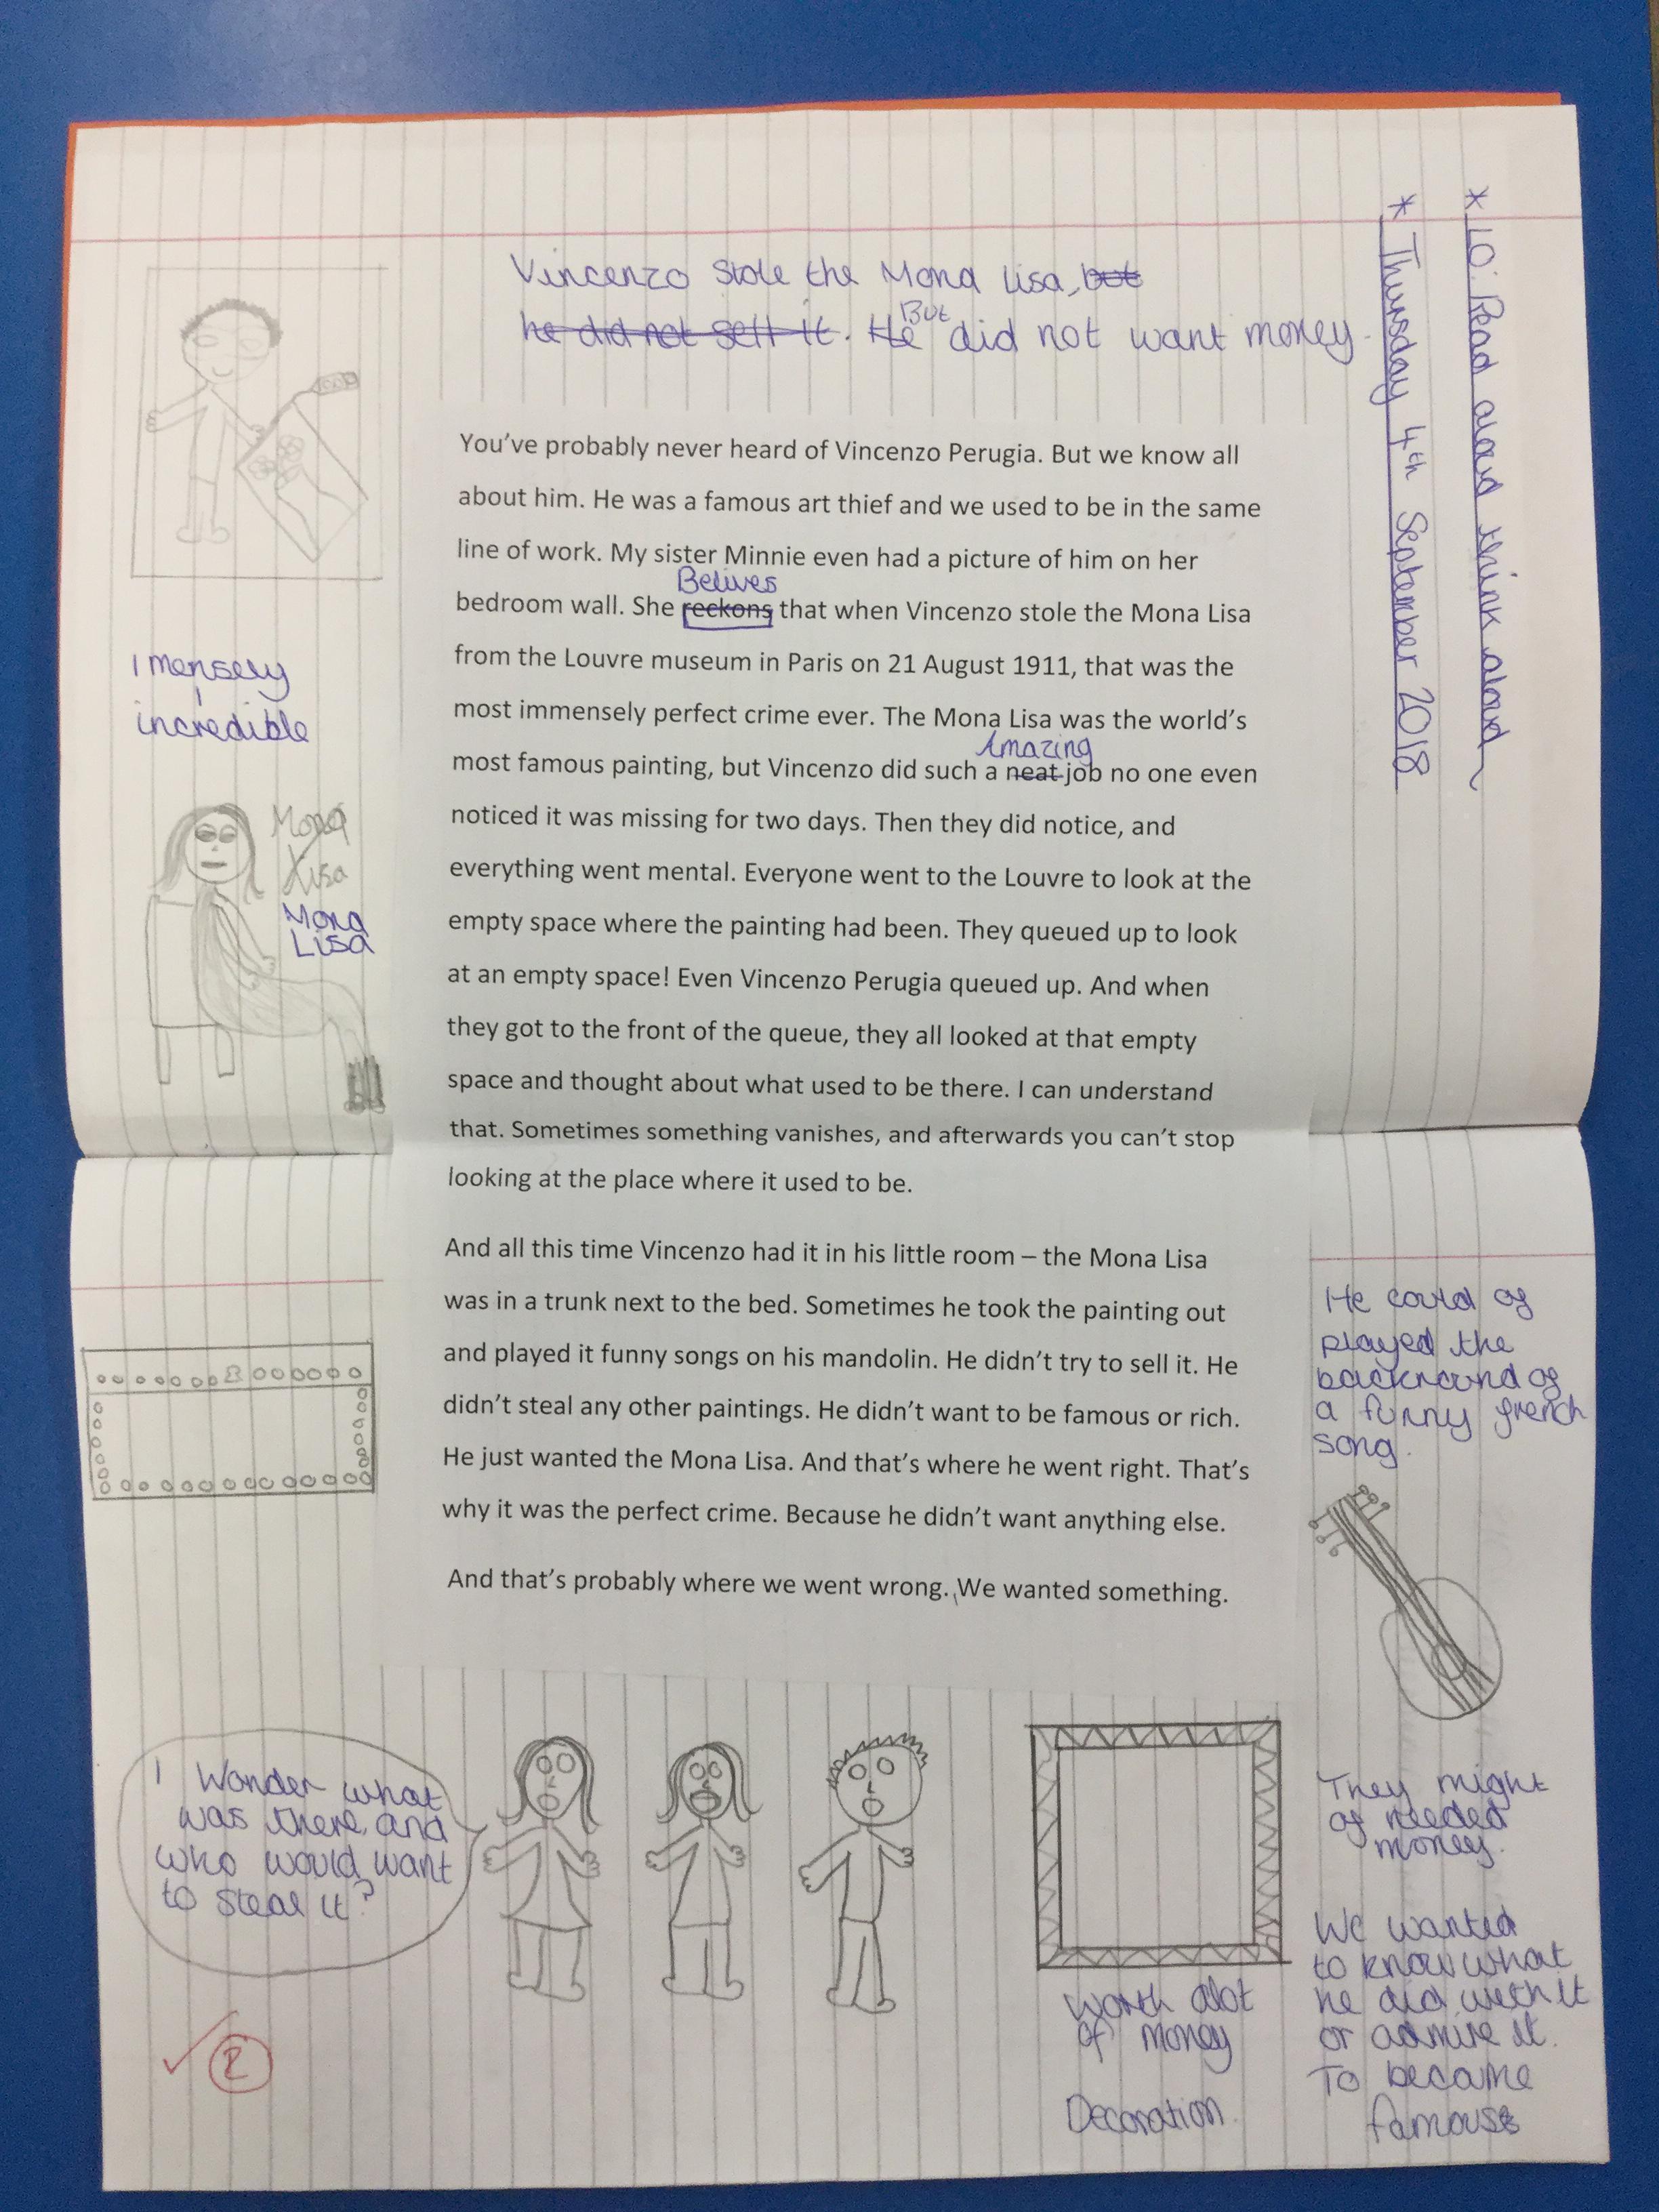 * LO: Read aloud think aloud
* Thursday 4th September 2018
Vincenzo stole the Mona Lisa, but
he did not sell it. He But did not want money.
You've probably never heard of Vincenzo Perugia. But we know all
about him. He was a famous art thief and we used to be in the same
line of work. My sister Minnie even had a picture of him on her
Belives
bedroom wall. She reckons that when Vincenzo stole the Mona Lisa
from the Louvre museum in Paris on 21 August 1911, that was the
most immensely perfect crime ever. The Mona Lisa was the world's
Amazing
most famous painting, but Vincenzo did such a neat job no one even
noticed it was missing for two days. Then they did notice, and
everything went mental. Everyone went to the Louvre to look at the
empty space where the painting had been. They queued up to look
at an empty space! Even Vincenzo Perugia queued up. And when
they got to the front of the queue, they all looked at that empty
space and thought about what used to be there. I can understand
that. Sometimes something vanishes, and afterwards you can't stop
looking at the place where it used to be.
And all this time Vincenzo had it in his little room – the Mona Lisa
was in a trunk next to the bed. Sometimes he took the painting out
and played it funny songs on his mandolin. He didn't try to sell it. He
didn't steal any other paintings. He didn't want to be famous or rich.
He just wanted the Mona Lisa. And that's where he went right. That's
why it was the perfect crime. Because he didn't want anything else.
And that's probably where we went wrong. We wanted something.
Imensely
incredible
Mona
Lisa
Mona
Lisa
He could of
played the
backround of
a funny french
song.
I Wonder what
was there, and
who would want
to steal it?
Worth alot
of money
Decoration.
They might
of needed
money.
We wanted
to know what
he did with it
or admire it.
To became
famous